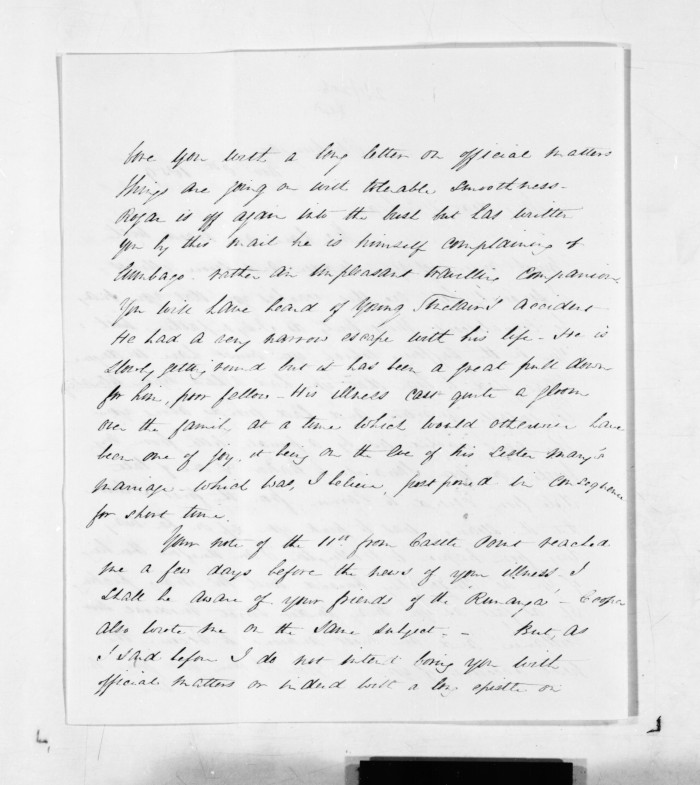 bore you with a long letter on official matters
things are going on with tolerable smoothness -
Rogan is off again into the bush but has written
you by this mail he is himself complaining of
lumbago - rather an unpleasant travelling companion.
You will have heard of Young Sinclair's accident
He had a very narrow escape with his life - He is
slowly getting round but it has been a great pull down
for him, poor fellow - His illness cast quite a gloom
over the family at a time which would otherwise have
been one of joy, it being on the eve of his sister Mary's
marriage - which was, I believe, postponed in consequence
for short time.
Your note of the 11th from Castle Point reached
me a few days before the news of your illness I
shall be aware of your friends of the 'Runanga' - Cooper
also wrote me on the same subject. - But, as
I said before I do not intend boring you with
official matters or indeed with a long epistle on